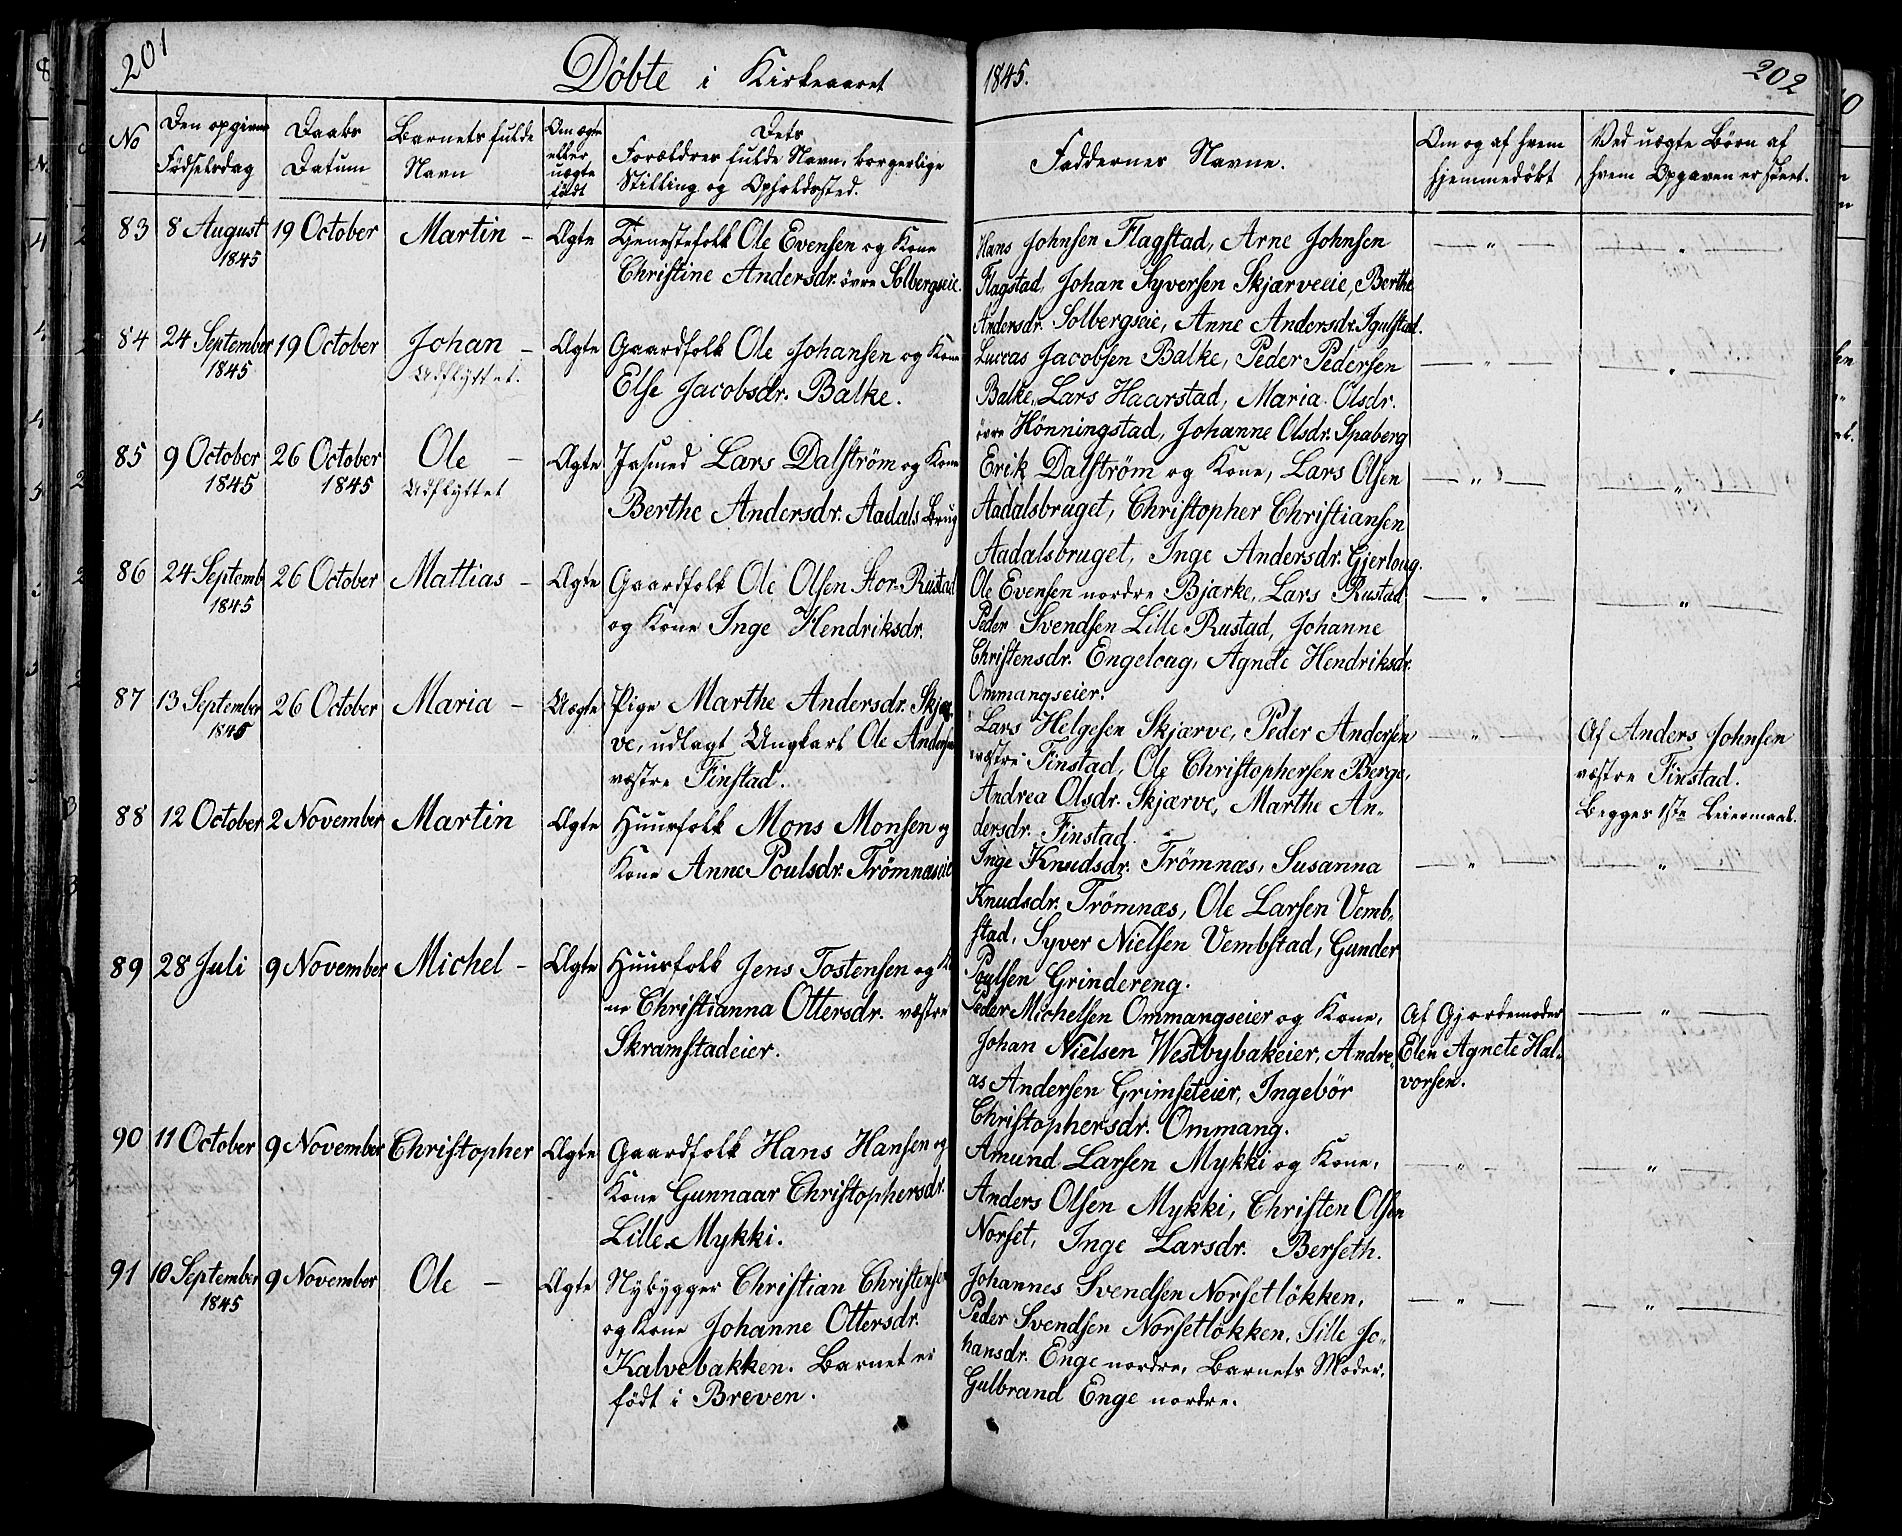 201
Döbte i Kirkeaaret
1845.
202
No
Den opgivne Födselsdag
Daabs Datum
Barnets fulde Navn
Om ægte eller uægte födt
Dets Forældres fulde Navn, borgerlige Stilling og Opholdssted.
Faddernes Navne.
Om og af hvem hjemmedöbt
Ved uægte Börn af hvem Opgaven er skeet.
83 8 August 19 October Martin - Ægte Tjenestefolk Ole Evensen og Kone
1845 Christine Andersdr. övre Solbergseie.
Hans Johnsen Flagstad, Arne Johnsen
Flagstad, Johan Syversen Skjærveeie, Berthe
Andersdr. Solbergseie, Anne Andersdr. Igulstad.
84 24 September 19 October Johan - Ægte Gaardfolk Ole Johansen og Kone
1845 Udflyttet. Else Jacobsdr. Balke.
Luccas Jacobsen Balke, Peder Pedersen
Balke, Lars Haarstad, Maria Olsdr.
övre Hönningstad, Johanne Olsdr. Spaberg
85 9 October 26 October Ole - Ægte Insmed Lars Dalström og Kone
1845 1845 Udflyttet Berthe Andersdr. Aadals Brug
Erik Dalström og Kone, Lars Olsen
Aadalsbruget, Christopher Christiansen
Aadalsbruget, Inge Andersdr. Gjerloug.
86 24 Septemb 26 October Mattias - Ægte Gaardfolk Ole Olsen Stor-Rustad
1845 og Kone Inge Hendriksdr.
Ole Evensen nordre Bjærke, Lars Rustad
Peder Svendsen Lille Rustad, Johanne
Christensdr. Engeloug, Agnete Hendriksdr.
Ommangseier.
87 13 September 26 October Maria - Uægte Pige Marthe Andersdr. Skjær-
1845 ve, udlagt Ungkarl Ole Andersen
væstre Finstad.
Lars Helgesen Skjærve, Peder Andersen
væstre Finstad, Ole Christophersen Berge,
Andrea Olsdr. Skjærve, Marthe An-
dersdr. Finstad.
Af Anders Johnsen
væstre Finstad.
Begges 1ste Leiermaal.
88 12 October 2 November Martin Ægte Huusfolk Mons Monsen og
Kone Anne Poulsdr. Trömnæseie
Inge Knudsdr. Trömnæs, Susanna
Knudsdr. Trömnæs, Ole Larsen Vemb-
stad, Syver Nielsen Vembstad, Gunder
Poulsen Grindereng.
89 28 Juli 9 November Michel - Ægte Huusfolk Jens Tostensen og Ko-
ne Christianna Ottersdr. væstre
Skramstadeier.
Peder Michelsen Ommangseier og Kone,
Johan Nielsen Westbybakeier, Andre-
as Andersen Grimseteier, Ingebör
Christophersdr. Ommang.
Af Gjordemoder
Elen Agnete Hal-
vorsen.
90 11 October 9 November Christopher Ægte Gaardfolk Hans Hansen og
Kone Gunnaar Christophersdr.
Lille Mykki.
Amund Larsen Mykki og Kone,
Anders Olsen Mykki, Christen Olsen
Norset, Inge Larsdr. Berseth.
91 10 September 9 November Ole - Ægte Nybygger Christian Christensen
1845 og Kone Johanne Ottersdr.
Kalvebakken. Barnet er
födt i Breven.
Johannes Svendsen Norsetlökken,
Peder Svendsen Norsetlökken, Sille Jo-
hansdr. Enge nordre, Barnets Moder,
Gulbrand Enge nordre.